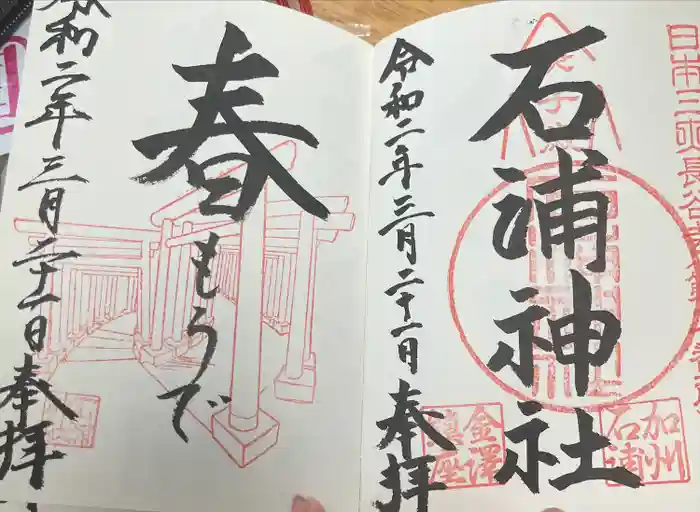 日本三所長谷寺
石浦神社
加州
石浦
金澤
鎮座
令和二年三月二十一日
奉拝
春もうで
令和二年三月二十一日
奉拝